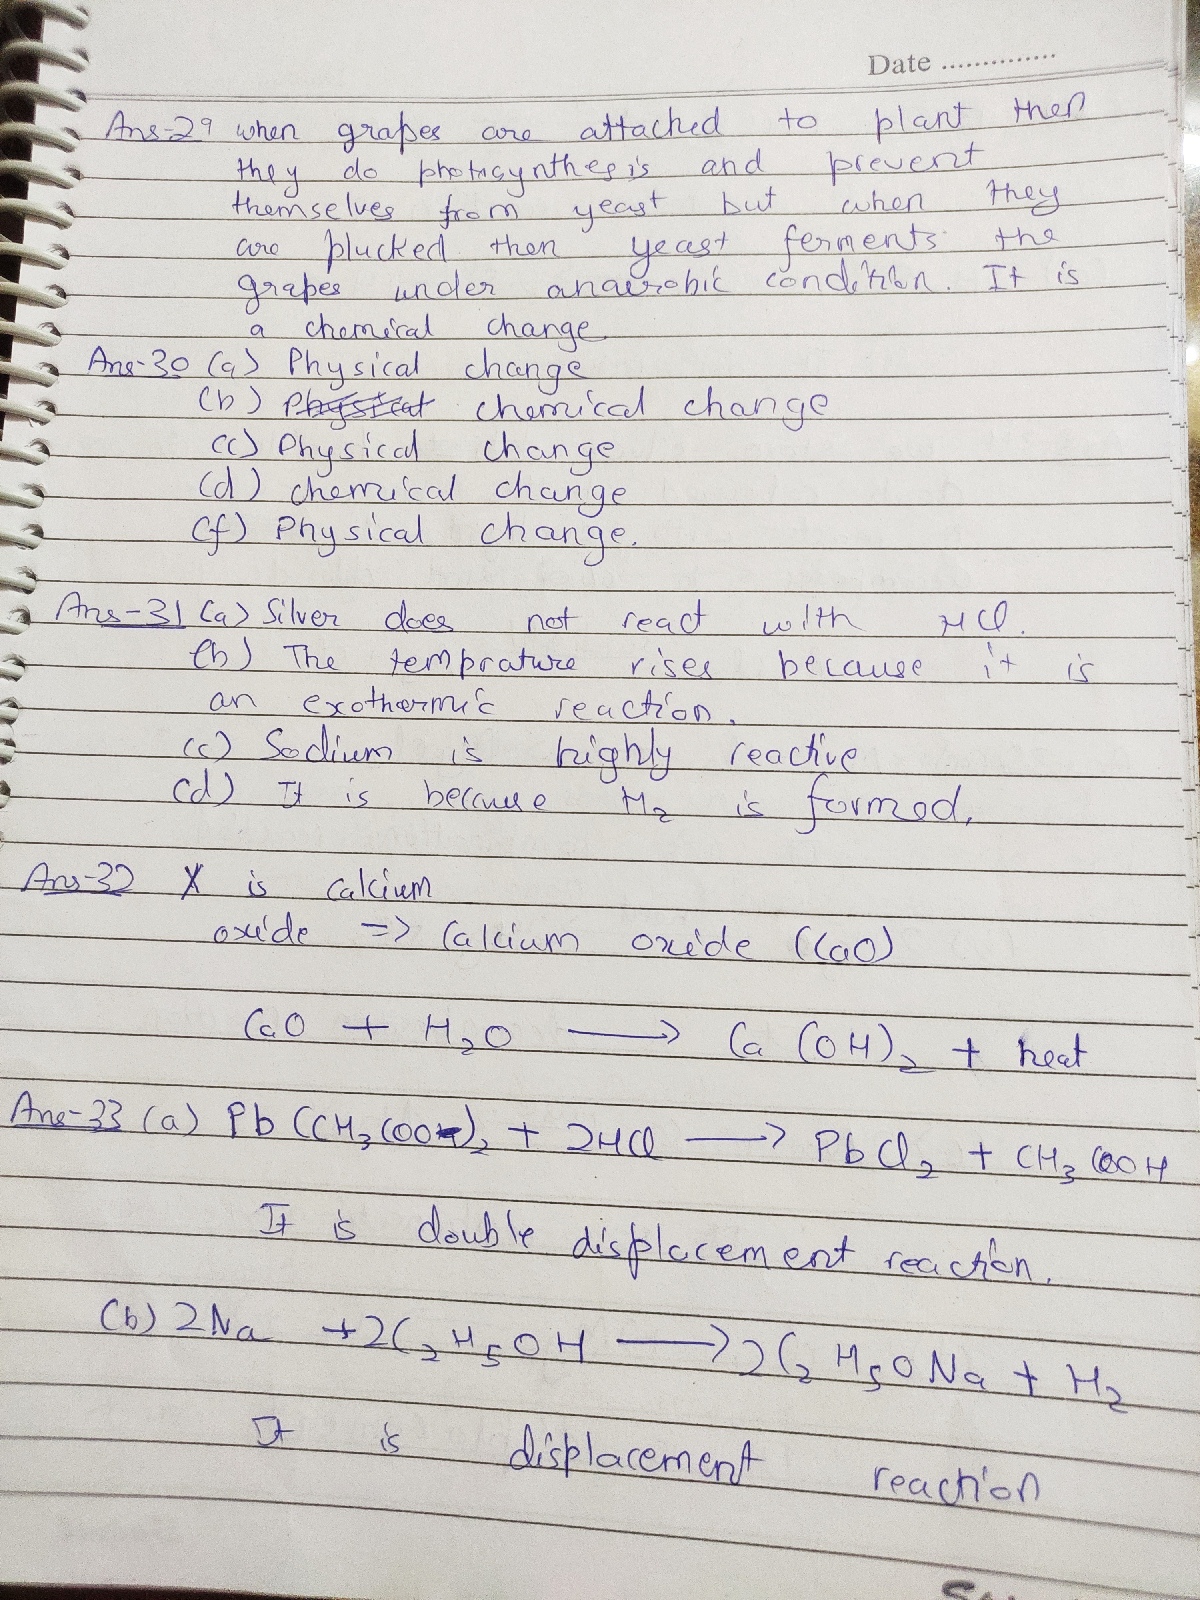 Date ..............
Ans-29 when grapes are attached to plant then
they do photosynthesis and prevent
themselves from yeast but when they
are plucked then yeast ferments the
grapes under anaerobic condition. It is
a chemical change
Ans-30 (a) Physical change
(b) Physical chemical change
(c) Physical change
(d) chemical change
(f) Physical change.
Ans-31 (a) Silver does not react with HCl.
(b) The temprature rises because it is
an exothermic reaction.
(c) Sodium is highly reactive
(d) It is because H₂ is formed.
Ans-32 X is calcium
oxide => Calcium oxide (CaO)
CaO + H₂O ⟶ Ca (OH)₂ + heat
Ans-33 (a) Pb (CH₃COO)₂ + 2HCl ⟶ PbCl₂ + CH₃COOH
It is double displacement reaction.
(b) 2Na + 2C₂H₅OH ⟶ 2C₂H₅ONa + H₂
It is displacement reaction